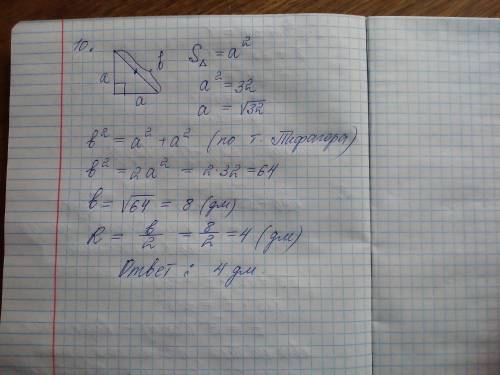 10.
a
b
a
S△ = a²
a² = 32
a = √32
b² = a² + a² (по т. Пифагора)
b² = 2a² = 2·32 = 64
b = √64 = 8 (дм)
R = b/2 = 8/2 = 4 (дм)
Ответ: 4 дм